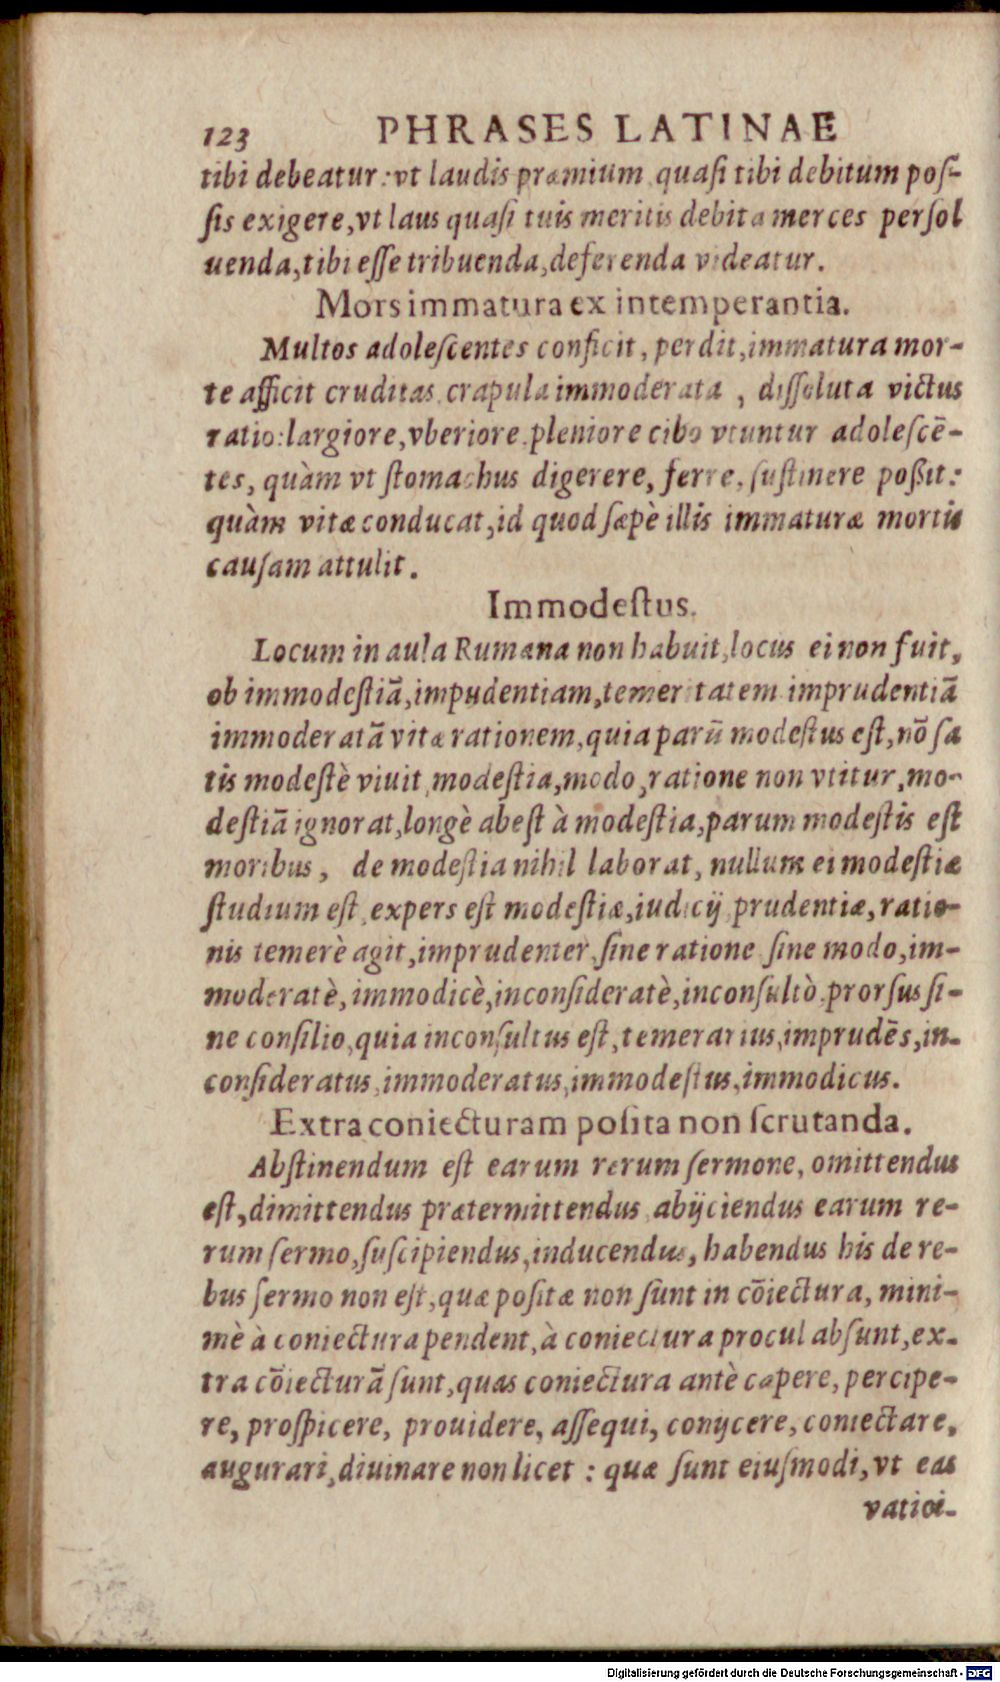 123 PHRASES LATINAE
tibi debeatur: vt laudis præmium quaſi tibi debitum poſ-
ſis exigere, vt laus quaſi tuis meritis debita merces perſol
uenda, tibi eſſe tribuenda, deferenda videatur.
Mors immatura ex intemperantia.
Multos adoleſcentes conficit, perdit, immatura mor-
te afficit cruditas, crapula immoderata, diſſoluta victus
ratio: largiore, vberiore, pleniore cibo vtuntur adoleſcē-
tes, quàm vt ſtomachus digerere, ferre, ſuſtinere poßit:
quàm vitæ conducat, id quod ſæpè illis immaturæ mortis
cauſam attulit.
Immodeſtus.
Locum in aula Rumana non habuit, locus ei non fuit,
ob immodeſtiā, impudentiam, temeritatem imprudentiā
immoderatā vitæ rationem, quia parū modeſtus eſt, nō ſa
tis modeſtè viuit, modeſtia, modo, ratione non vtitur, mo-
deſtiā ignorat, longè abeſt à modeſtia, parum modeſtis eſt
moribus, de modeſtia nihil laborat, nullum ei modeſtiæ
ſtudium eſt, expers eſt modeſtiæ, iudicij prudentiæ, ratio-
nis temerè agit, imprudenter, ſine ratione ſine modo, im-
moderatè, immodicè, inconſideratè, inconſultò, prorſus ſi-
ne conſilio, quia inconſultus eſt, temerarius, imprudēs, in-
conſideratus, immoderatus, immodeſtus, immodicus.
Extra coniecturam poſita non ſcrutanda.
Abſtinendum eſt earum rerum ſermone, omittendus
eſt, dimittendus prætermittendus, abijciendus earum re-
rum ſermo, ſuſcipiendus, inducendus, habendus his de re-
bus ſermo non eſt, quæ poſitæ non ſunt in cōiectura, mini-
mè à coniectura pendent, à coniectura procul abſunt, ex-
tra cōiecturā ſunt, quas coniectura antè capere, percipe-
re, proſpicere, prouidere, aſſequi, conijcere, coniectare,
augurari, diuinare non licet: quæ ſunt eiuſmodi, vt eas
vatici-
Digitalisierung gefördert durch die Deutsche Forschungsgemeinschaft - DFG